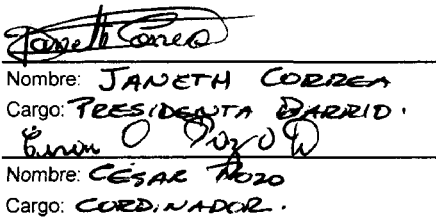 Janeth Correa
Nombre: JANETH CORREA
Cargo: PRESIDENTA BARRIO.
Nombre: CÉSAR POZO
Cargo: CORDINADOR.